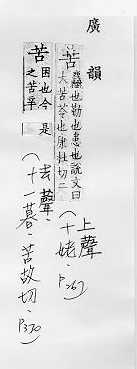 廣韻
苦 麤也勤也患也說文曰
大苦苓也康杜切二
上聲
(十姥.P267)
苦 困也今 是
之苦辛
去聲.
(十一暮.苦故切.P370)